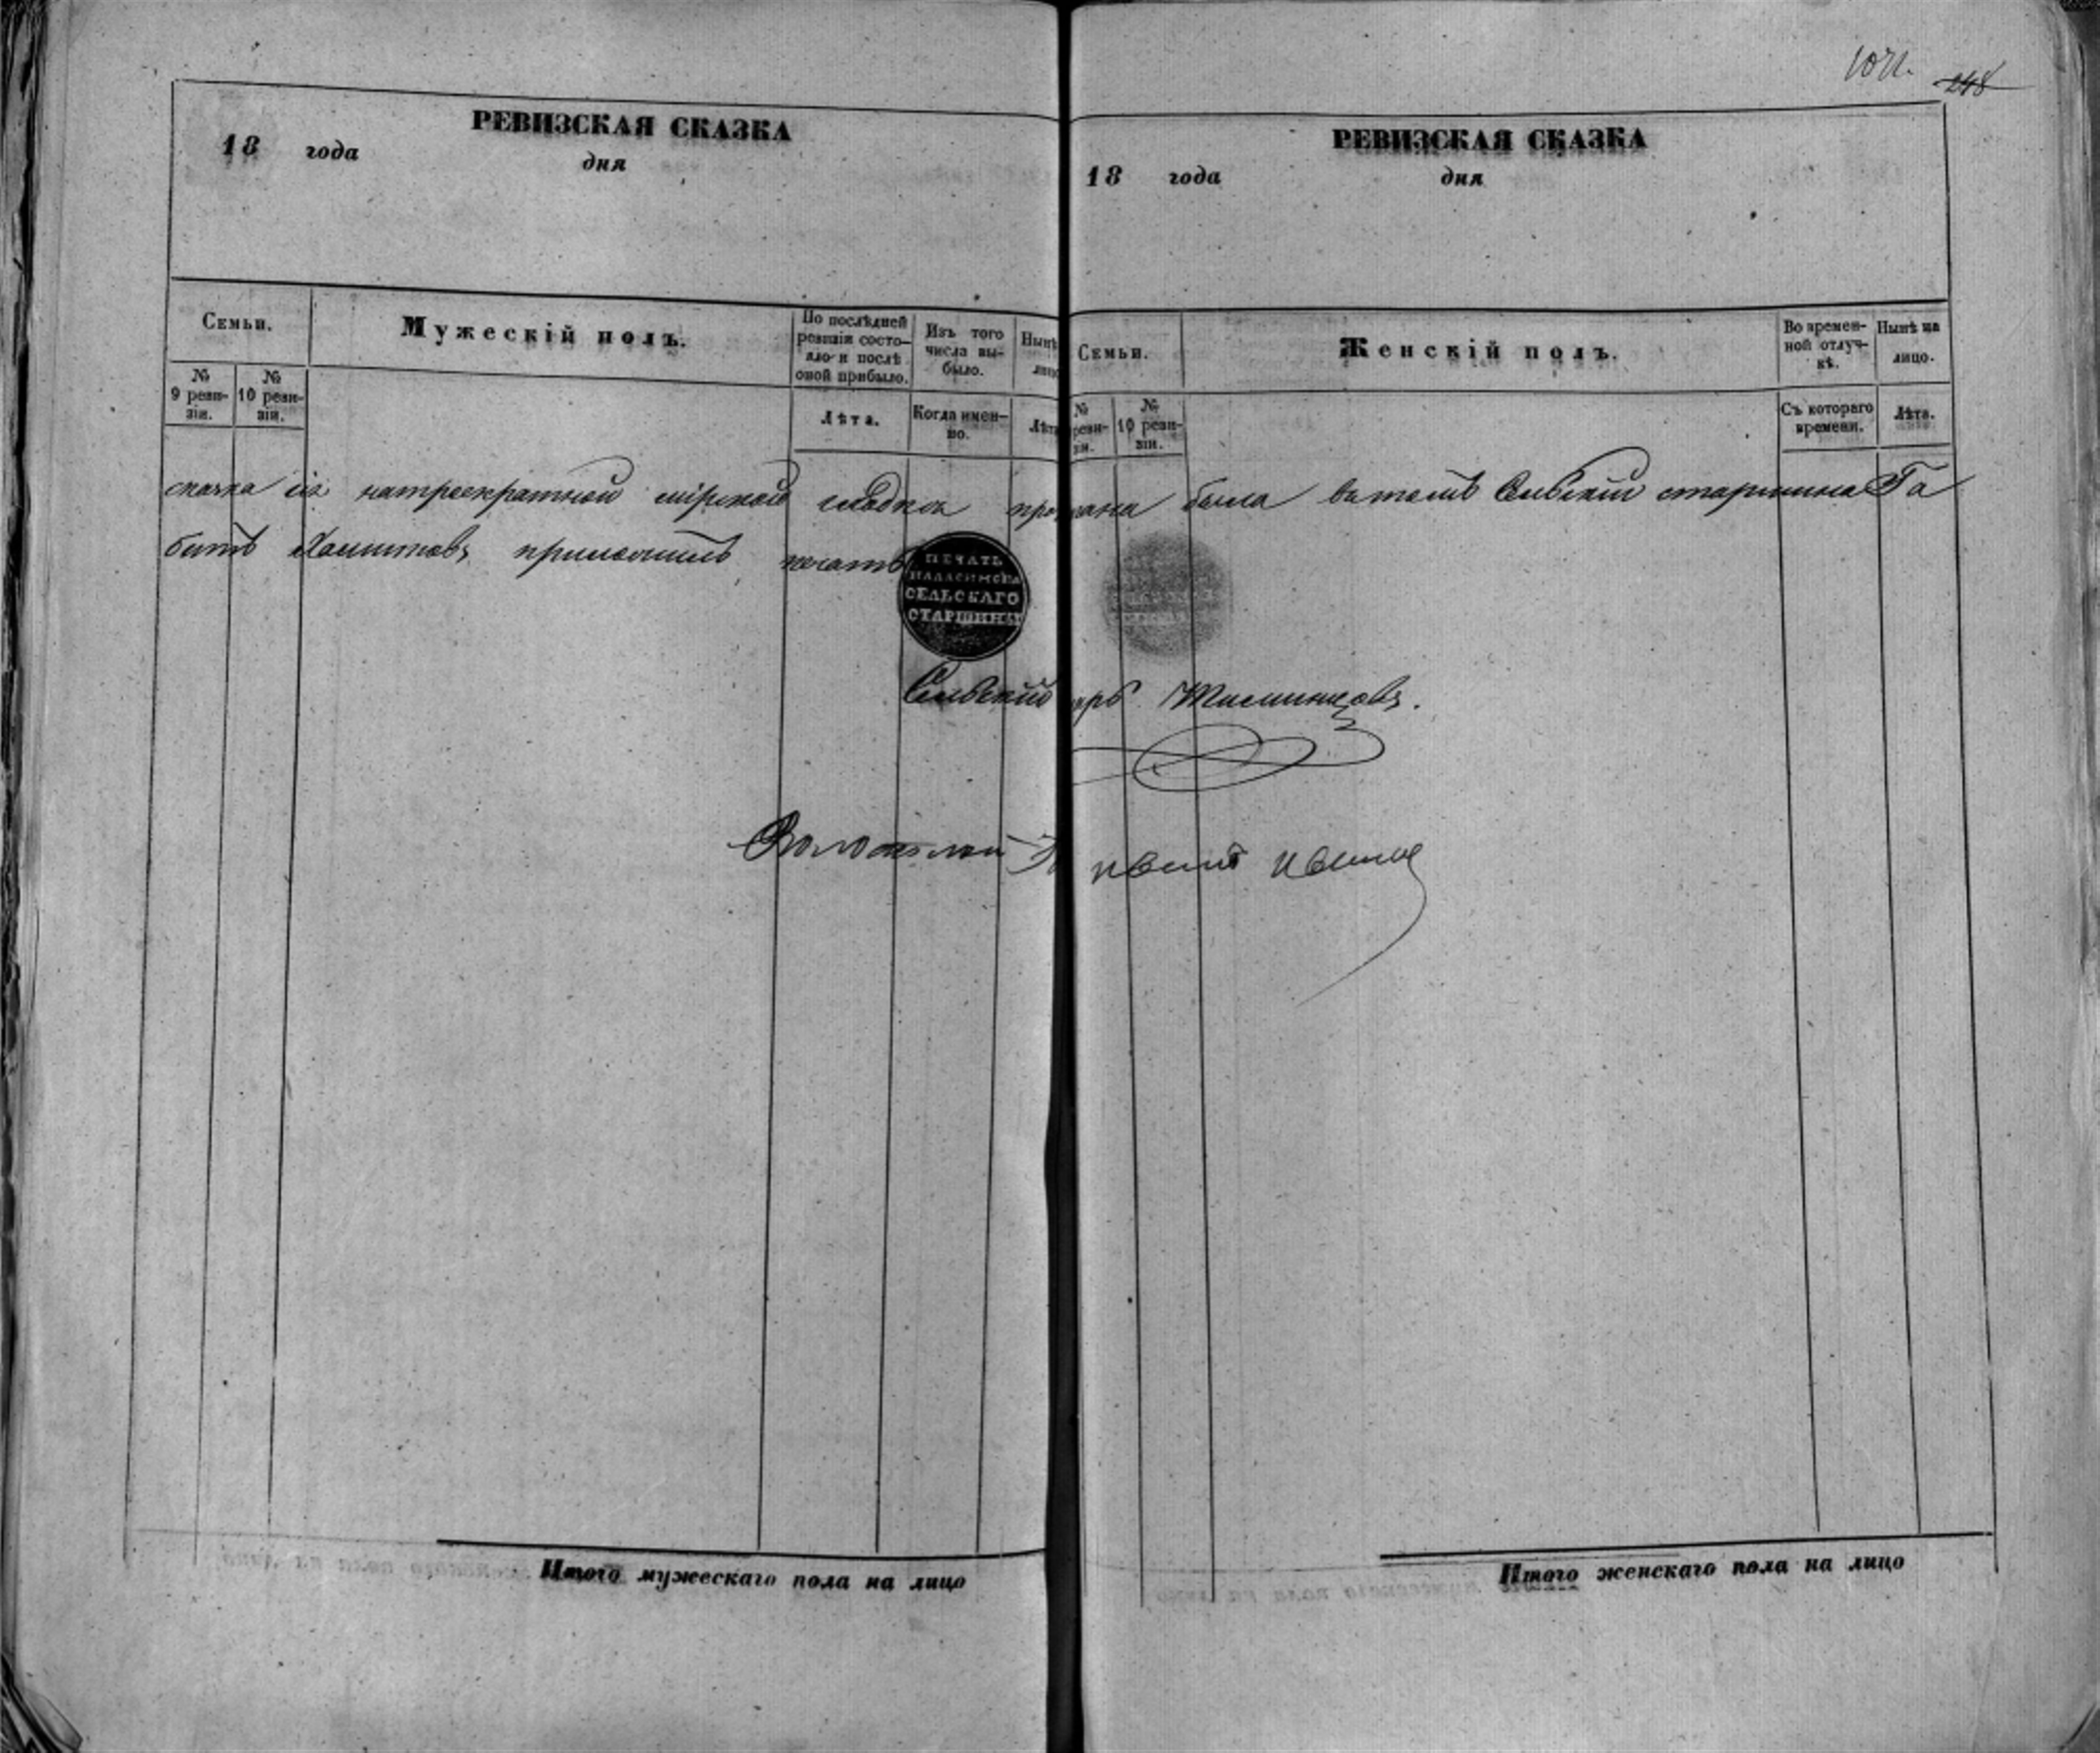 РЕВИЗСКАЯ СКАЗКА
18 года дня
Семьи.
Мужескій полъ.
По послѣдней ревизіи состояло и послѣ оной прибыло.
Изъ того числа выбыло.
Нынѣ
№ 9 ревизіи.
№ 10 ревизіи.
Лѣта.
Когда именно.
Лѣта
РЕВИЗСКАЯ СКАЗКА
18 года дня
Семьи.
Женскій полъ.
Во временной отлучкѣ.
Нынѣ на лицо.
№ реви-зіи.
№ 10 ревизіи.
Съ котораго времени.
Лѣта.
сказка сія мірскаго была въ томъ Сельскій старшина Га
битъ приложилъ печать
ПЕЧАТЬ
СЕЛЬСКАГО
СТАРШИНЫ
Сельскій арь
Итого мужескаго пола на лицо
Итого женскаго пола на лицо
248